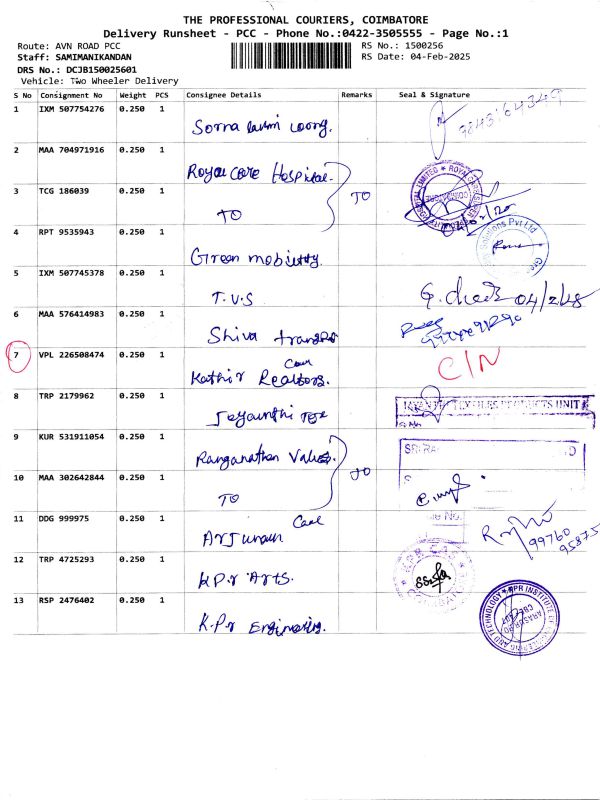 THE PROFESSIONAL COURIERS, COIMBATORE
Delivery Runsheet - PCC - Phone No.:0422-3505555 - Page No.:1
Route: AVN ROAD PCC RS No.: 1500256
Staff: SAMIMANIKANDAN RS Date: 04-Feb-2025
DRS No.: DCJB150025601
Vehicle: Two Wheeler Delivery
S No Consignment No Weight PCS Consignee Details Remarks Seal & Signature
1 IXM 507754276 0.250 1
2 MAA 704971916 0.250 1 Royal care Hospital. TO
3 TCG 186039 0.250 1 TO
4 RPT 9535943 0.250 1 Green mobility.
5 IXM 507745378 0.250 1 T.V.S 04/2/25
6 MAA 576414983 0.250 1 Shiva
7 VPL 226508474 0.250 1 Kathir Realtors. C/N
8 TRP 2179962 0.250 1
9 KUR 531911054 0.250 1 Ranganathan
10 MAA 302642844 0.250 1 TO
11 DDG 999975 0.250 1 Arjunan 99760 95875
12 TRP 4725293 0.250 1 K.P.r Arts.
13 RSP 2476402 0.250 1 K.P.r Engineering.